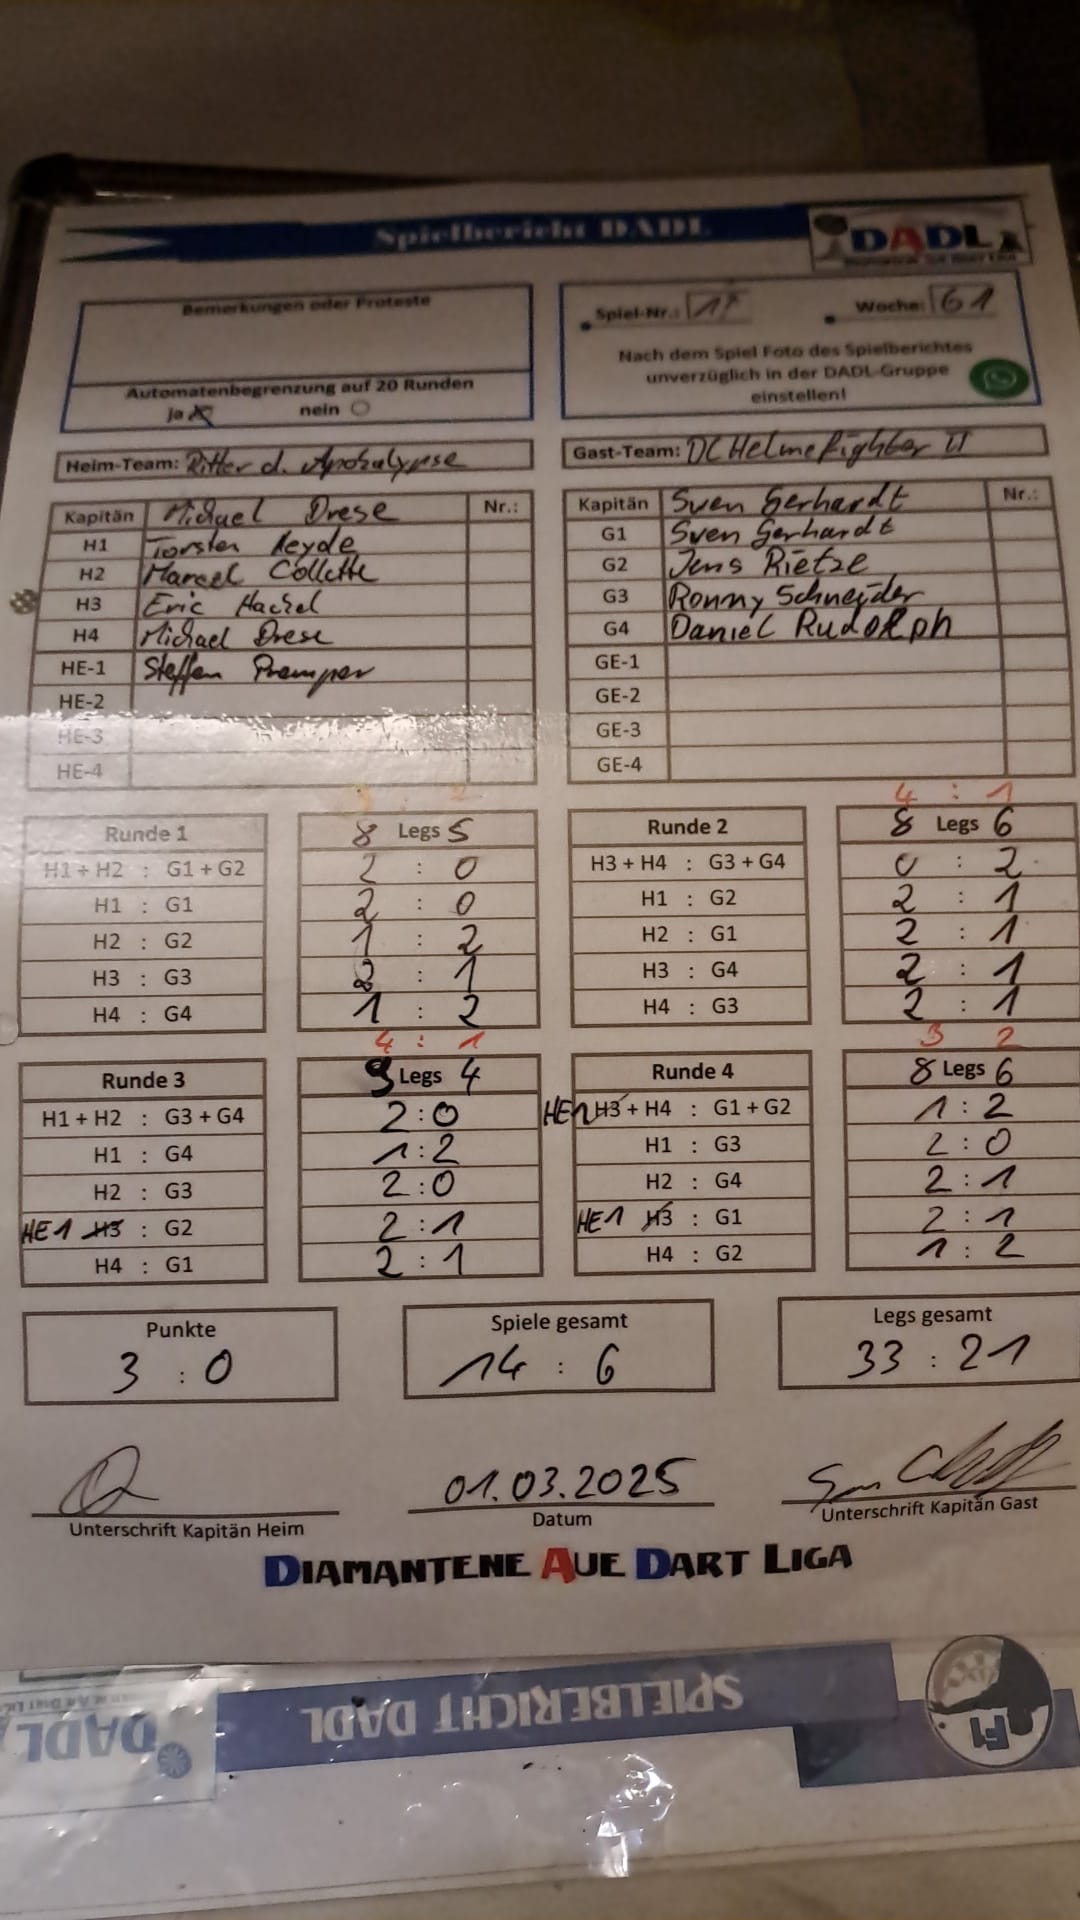 Spielbericht DADL
DADL
Bemerkungen oder Proteste
Automatenbegrenzung auf 20 Runden
ja nein
Spiel-Nr.: 17
Woche: G1
Nach dem Spiel Foto des Spielberichtes
unverzüglich in der DADL-Gruppe
einstellen!
Heim-Team: Ritter d. Apokalypse
Gast-Team: DC Helmefighter II
Kapitän Michael Drese Nr.:
H1 Torsten Heyde
H2 Marcel Collette
H3 Eric Hackel
H4 Michael Drese
HE-1 Steffen Premper
HE-2
HE-3
HE-4
Kapitän Sven Gerhardt Nr.:
G1 Sven Gerhardt
G2 Jens Rietze
G3 Ronny Schneider
G4 Daniel Rudolph
GE-1
GE-2
GE-3
GE-4
3 : 2
Runde 1 8 Legs 5
H1 + H2 : G1 + G2 2 : 0
H1 : G1 2 : 0
H2 : G2 1 : 2
H3 : G3 2 : 1
H4 : G4 1 : 2
4 : 1
Runde 2 8 Legs 6
H3 + H4 : G3 + G4 0 : 2
H1 : G2 2 : 1
H2 : G1 2 : 1
H3 : G4 2 : 1
H4 : G3 2 : 1
4 : 1
Runde 3 9 Legs 4
H1 + H2 : G3 + G4 2:0
H1 : G4 1:2
H2 : G3 2:0
HE1 H3 : G2 2:1
H4 : G1 2:1
3 2
Runde 4 8 Legs 6
HE1 H3 + H4 : G1 + G2 1:2
H1 : G3 2:0
H2 : G4 2:1
HE1 H3 : G1 2:1
H4 : G2 1:2
Punkte
3 : 0
Spiele gesamt
14 : 6
Legs gesamt
33 : 21
01.03.2025
Unterschrift Kapitän Heim
Datum
Unterschrift Kapitän Gast
DIAMANTENE AUE DART LIGA
SPIELBERICHT DADL
DADL
F1